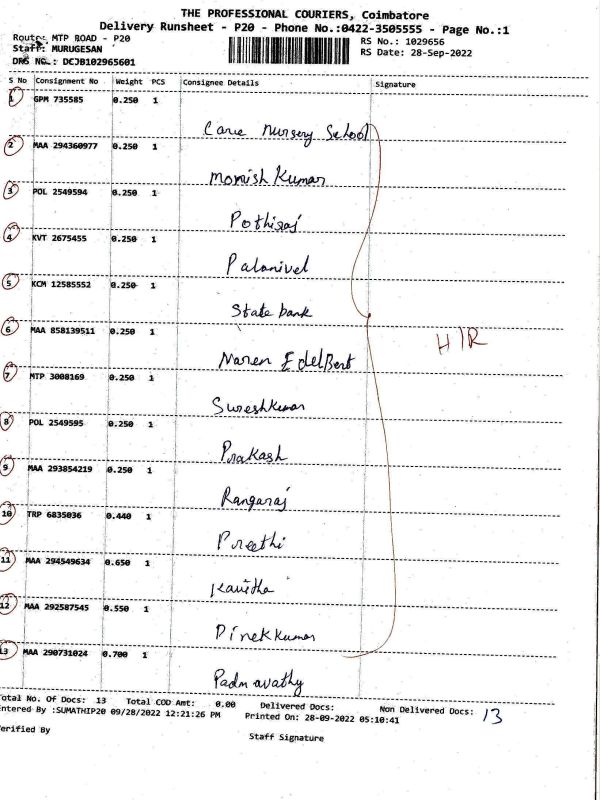 THE PROFESSIONAL COURIERS, Coimbatore
Delivery Runsheet - P20 - Phone No.:0422-3505555 - Page No.:1
Route: MTP ROAD - P20
Staff: MURUGESAN
DRS NO.: DCJB102965601
RS No.: 1029656
RS Date: 28-Sep-2022
S No Consignment No Weight PCS Consignee Details Signature
1 GPM 735585 0.250 1
Care Nursery School
2 MAA 294360977 0.250 1
Monish Kumar
3 POL 2549594 0.250 1
Pothiraj
4 KVT 2675455 0.250 1
Palanivel
5 KCM 12585552 0.250 1
State bank
6 MAA 858139511 0.250 1
H/R
Naren EdelBert
7 MTP 3008169 0.250 1
Sureshkumar
8 POL 2549595 0.250 1
Prakash
9 MAA 293854219 0.250 1
Rangaraj
10 TRP 6835036 0.440 1
Preethi
11 MAA 294549634 0.650 1
Kavitha
12 MAA 292587545 0.550 1
Dinekkumar
13 MAA 290731024 0.700 1
Padmavathy
otal No. Of Docs: 13 Total COD Amt: 0.00 Delivered Docs: Non Delivered Docs: 13
ntered By :SUMATHIP20 09/28/2022 12:21:26 PM Printed On: 28-09-2022 05:10:41
erified By
Staff Signature